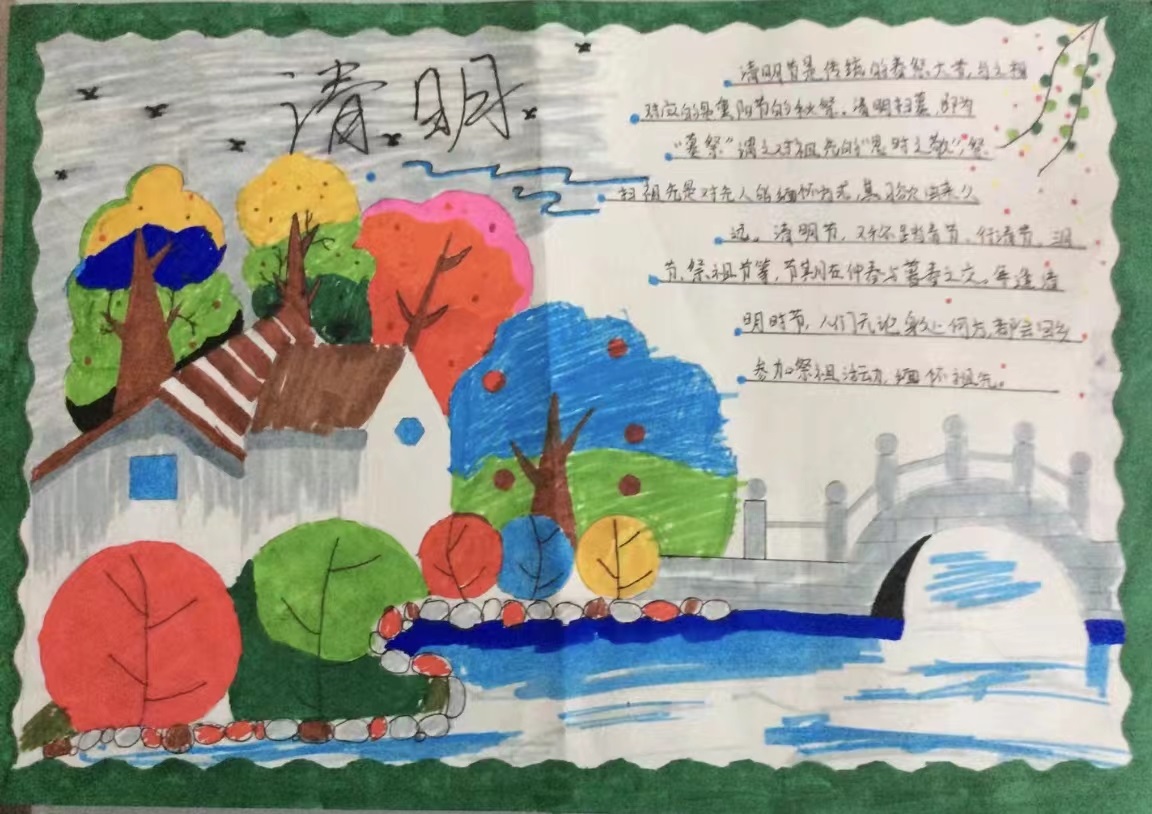 清明
清明节是传统的春祭大节,与之相
对应的是重阳节的秋祭。清明扫墓,即为
“墓祭”谓之对祖先的“思时之敬”,祭
扫祖先是对先人的缅怀方式,其习俗由来久
远。清明节,又称踏青节、行清节、三月
节、祭祖节等,节期在仲春与暮春之交。每逢清
明时节,人们无论身处何方,都会回乡
参加祭祖活动,缅怀祖先。